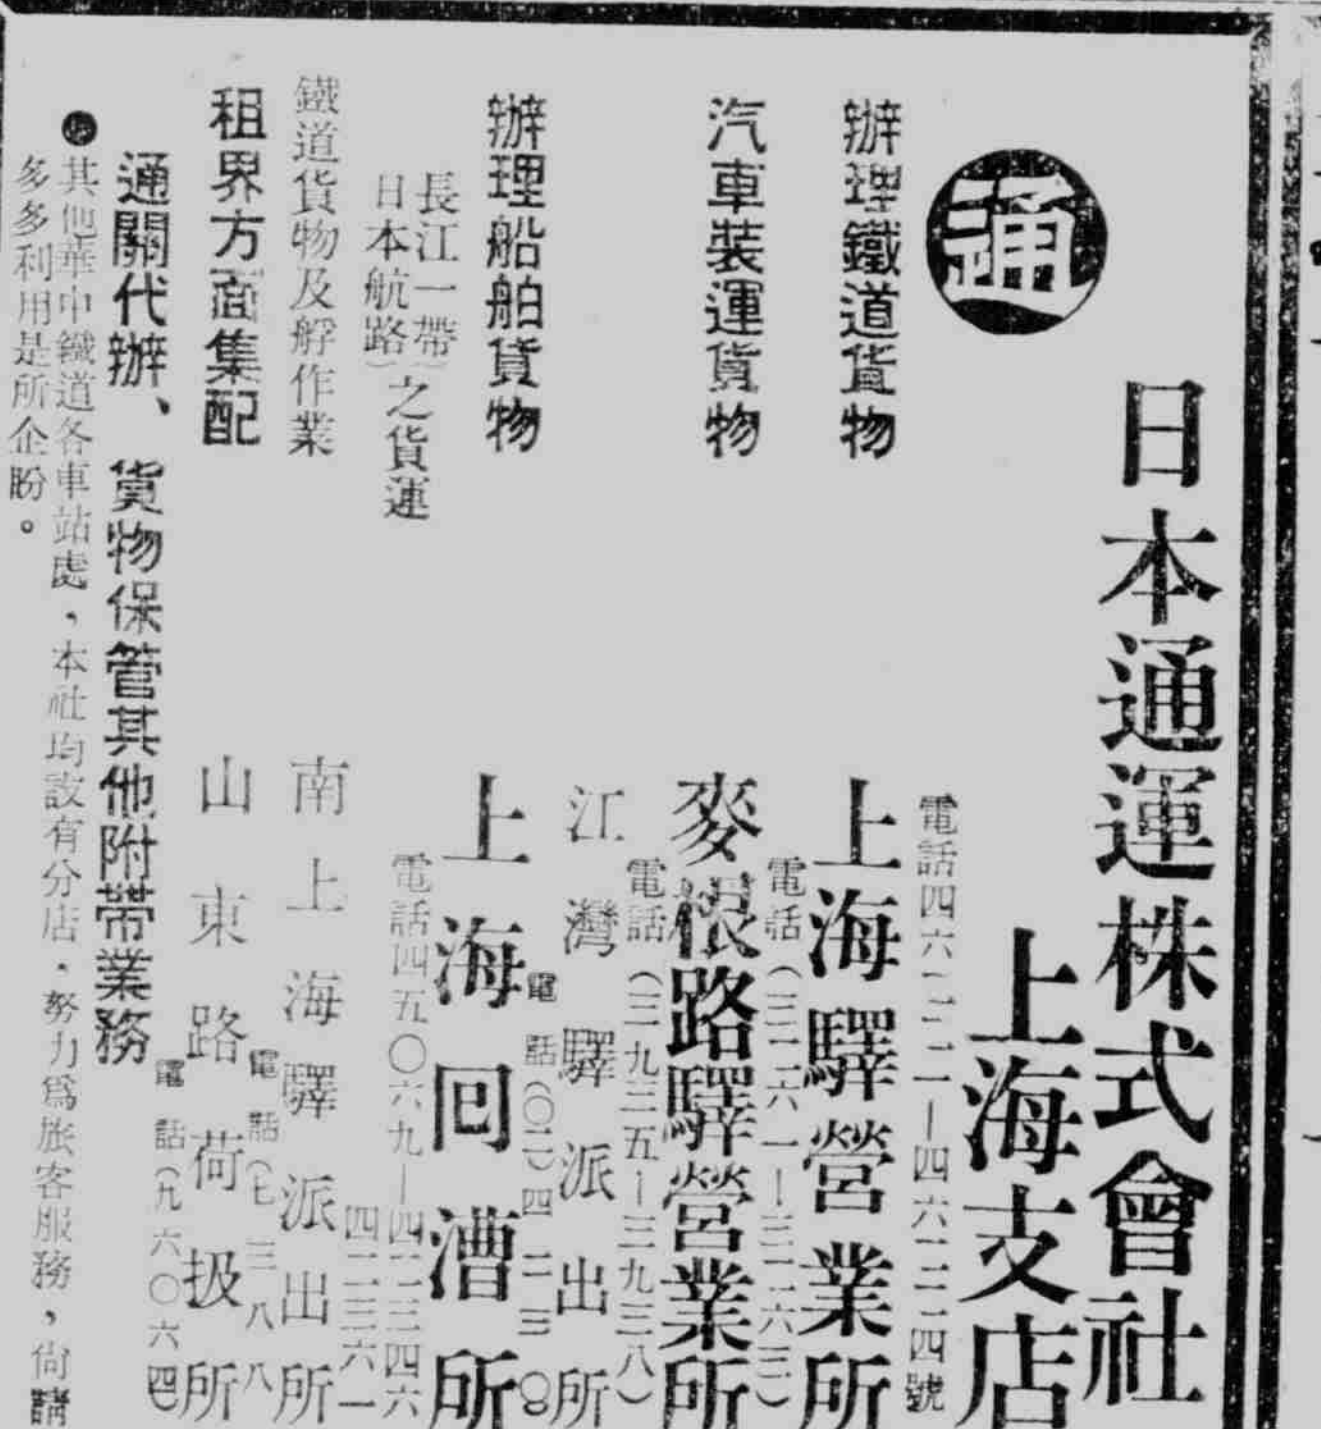 通
日本通運株式會社
上海支店
電話四六一二二一—四六一二二四號
辦理鐵道貨物
上海驛營業所
電話(三二二六一—三二二六三)
汽車裝運貨物
麥根路驛營業所
電話(三九三五—三九三八)
江灣驛派出所
電話(〇二)四二三〇
辦理船舶貨物
上海回漕所
長江一帶
日本航路
之貨運
電話四五〇六九—四二三四六
四二三六一
鐵道貨物及艀作業
南上海驛派出所
電話(七三八八
租界方面集配
山東路荷扱所
電話(九六〇六四)
通關代辦、貨物保管其他附帶業務
●其他華中鐵道各車站處，本社均設有分店，努力爲旅客服務，尙請
多多利用是所企盼。